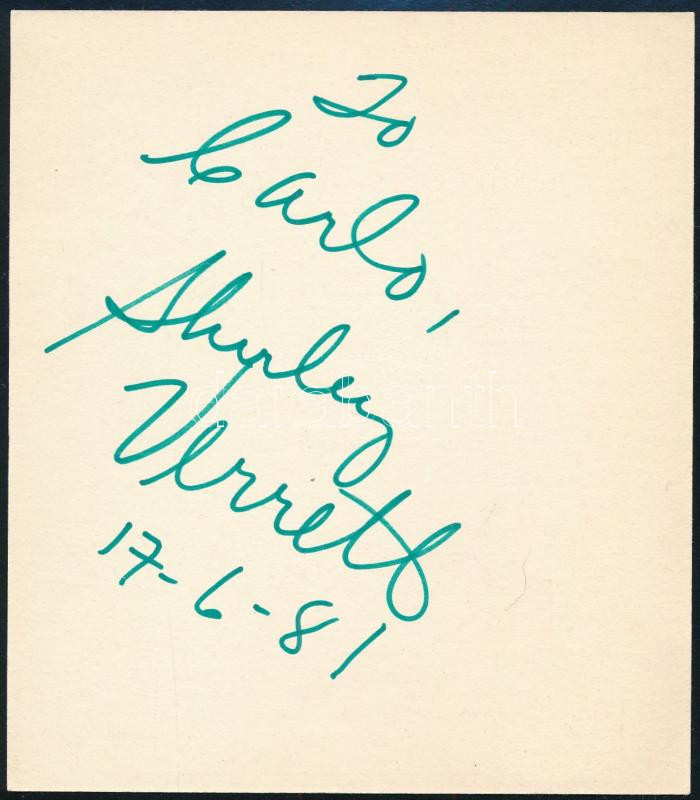 To
Carlo,
Shirley
Verrett
17-6-81
darabanth